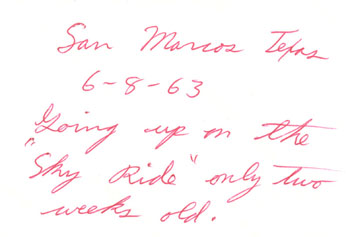 San Marcos Texas
6-8-63
Going up on the
"Sky Ride" only two
weeks old.